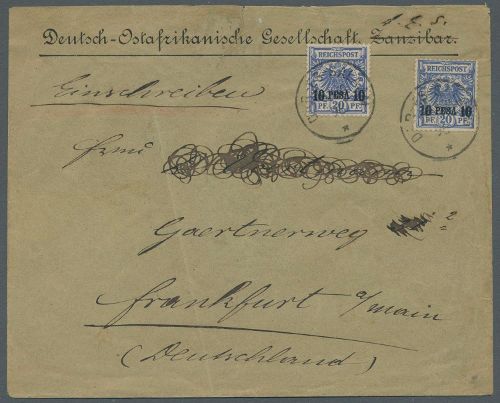 d. E. S.
Deutsch-Ostafrikanische Gesellschaft. Zanzibar.
REICHSPOST
10 PESA 10
PF. 20 PF.
REICHSPOST
10 PESA 10
PF. 20 PF.
Einschreiben
Gaertnerweg 2
Frankfurt a/main
(Deutschland)